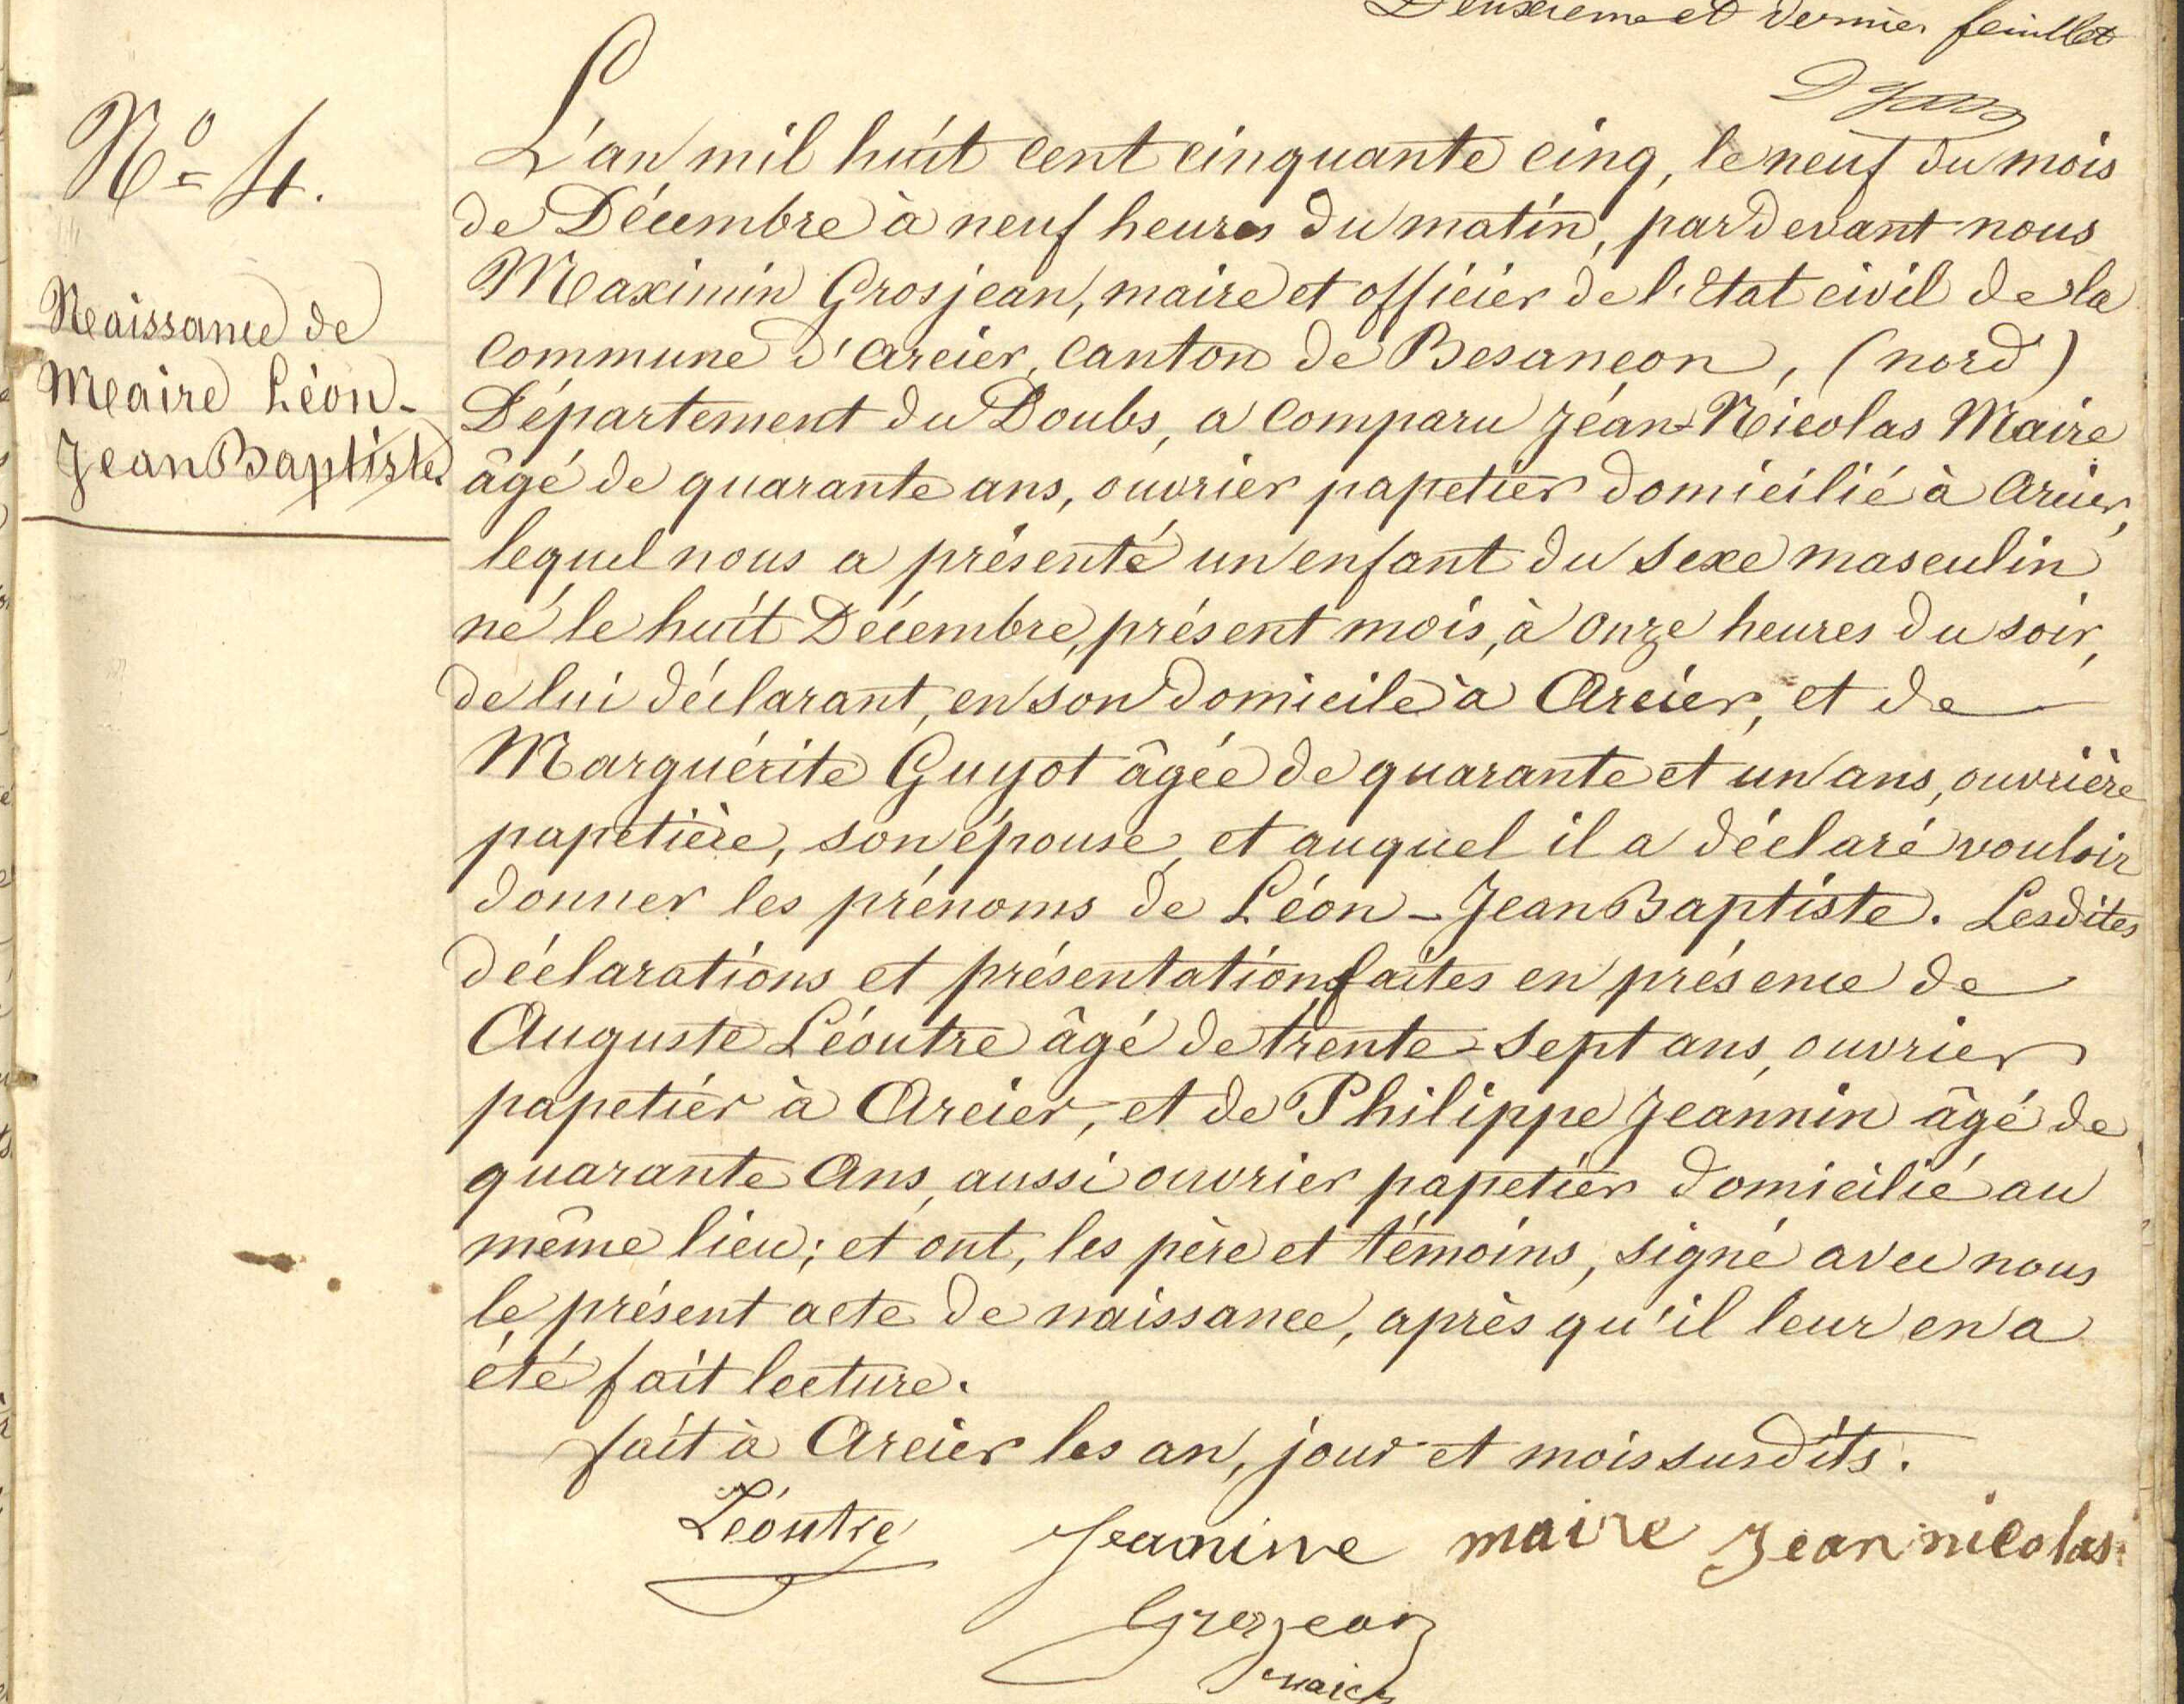 Deuxieme et dernier feuillet
N° 4.
Naissance de
Maire Léon-
Jean Baptiste.
L'an mil huit cent cinquante cinq, le neuf du mois
de Décembre à neuf heures du matin, pardevant nous
Maximin Grosjean, maire et officier de l'Etat civil de la
commune d'Arcier, canton de Besançon, (nord)
Département du Doubs, a comparu Jean-Nicolas Maire
âgé de quarante ans, ouvrier papetier domicilié à Arcier,
lequel nous a présenté un enfant du sexe masculin
né le huit Décembre, présent mois, à onze heures du soir,
de lui déclarant, en son domicile à Arcier, et de
Marguérite Guyot âgée de quarante et un ans, ouvrière
papetière, son épouse, et auquel il a déclaré vouloir
donner les prénoms de Léon-Jean Baptiste. Lesdites
déclarations et présentations faites en présence de
Auguste Léoutre âgé de trente-sept ans, ouvrier
papetier à Arcier, et de Philippe Jeannin âgé de
quarante ans, aussi ouvrier papetier domicilié au
même lieu; et ont, les père et témoins, signé avec nous
le présent acte de naissance, après qu'il leur en a
été fait lecture.
fait à Arcier les an, jour et mois susdits.
Léoutre Jeanine maire Jean nicolas
Grosjean
maire